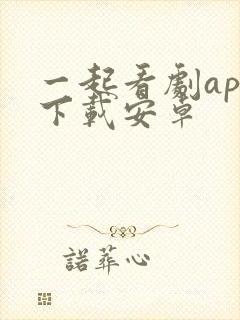 一起看劇ap
下載安卓
諾葬心